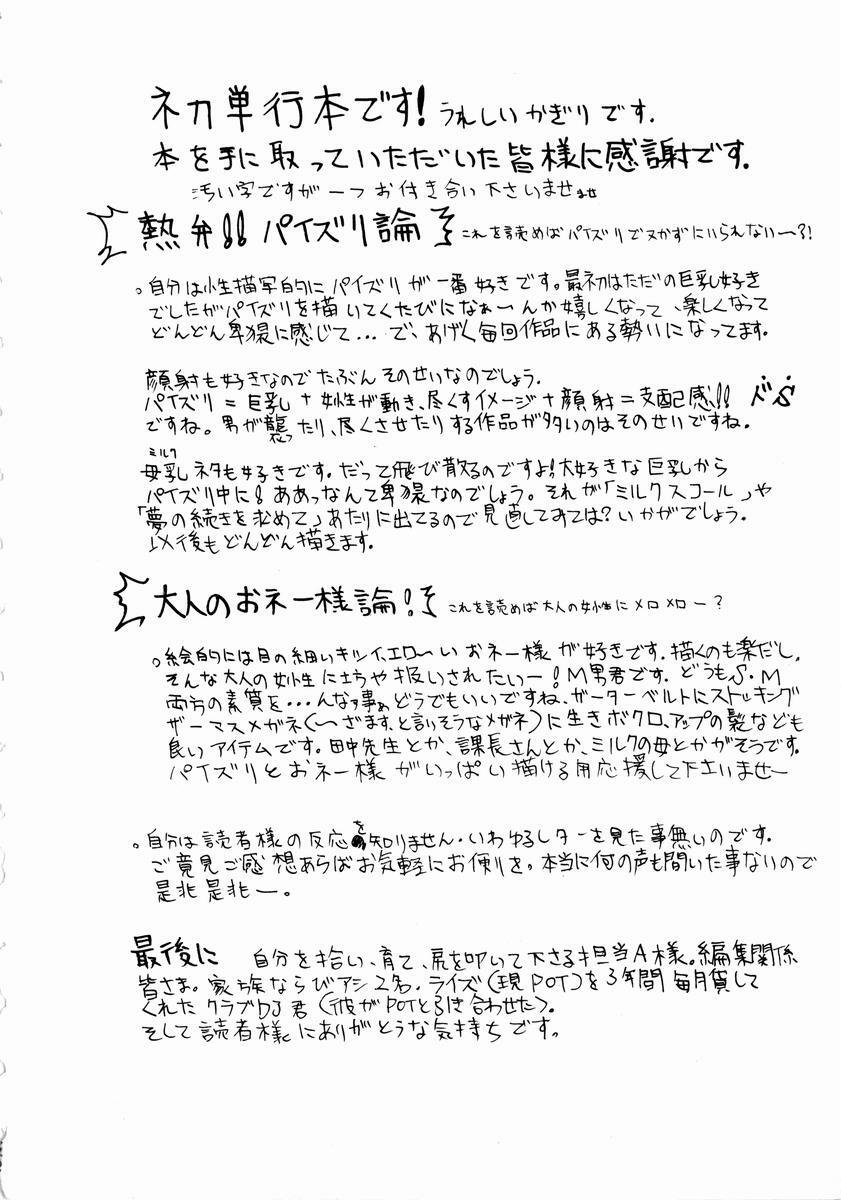 ネカ単行本です! うれしいかぎりです.
本を手に取っていただいた皆様に感謝です.
汚い字ですが一つお付き合い下さいませ ませ
熱弁!! パイズリ論 これを読めばパイズリでヌかずにいられないー?!
。自分は性描写的にパイズリが一番好きです。最初はただの巨乳好き
でしたがパイズリを描いてくたびになぁーんか嬉しくなって、楽しくなって
どんどん卑猥に感じて...で、あげく毎回作品にある勢いになってます.
顔射も好きなのでたぶんそのせいなのでしょう.
パイズリ=巨乳+女性が動き、尽くすイメージ+顔射=支配感!! ドS
ですね。男が襲ったり、尽くさせたりする作品が多いのはそのせいですね.
ミルク
母乳ネタも好きです.だって飛び散るのですよ!大好きな巨乳から
パイズリ中に!ああっなんて卑猥なのでしょう。それが「ミルクスコール」や
「夢の続きを求めて」あたりに出てるので見直してみては?いかがでしょう.
以後もどんどん描きます.
大人のおネー様論! これを読めば大人の女性にメロメロー?
。絵的には目の細いキツイ、エロ〜いおネー様が好きです.描くのも楽だし,
そんな大人の女性に坊や扱いされたいー!M男君です.どうもS・M
両方の素質を...んな事ぁどうでもいいですね、ガーターベルトにストッキング
ザーマスメガネ(〜ざます、と言いそうなメガネ)に生きボクロ、アップの髪なども
良いアイテムです.田中先生とか、課長さんとか、ミルクの母とかがそうです.
パイズリとおネー様がいっぱい描ける用応援して下さいませー
。自分は読者様の反応を知りません.いわゆるレターを見た事無いのです.
ご意見ご感想あらばお気軽にお便りを。本当に何の声も聞いた事ないので
是非是非ー。
最後に 自分を拾い、育て、尻を叩いて下さる担当A様。編集関係
皆さま。家族ならびアシ2名.ライズ(現POT)を3年間毎月貸して
くれたクラブDJ君(彼がPOTと引き合わせた)。
そして読者様にありがとうな気持ちです。